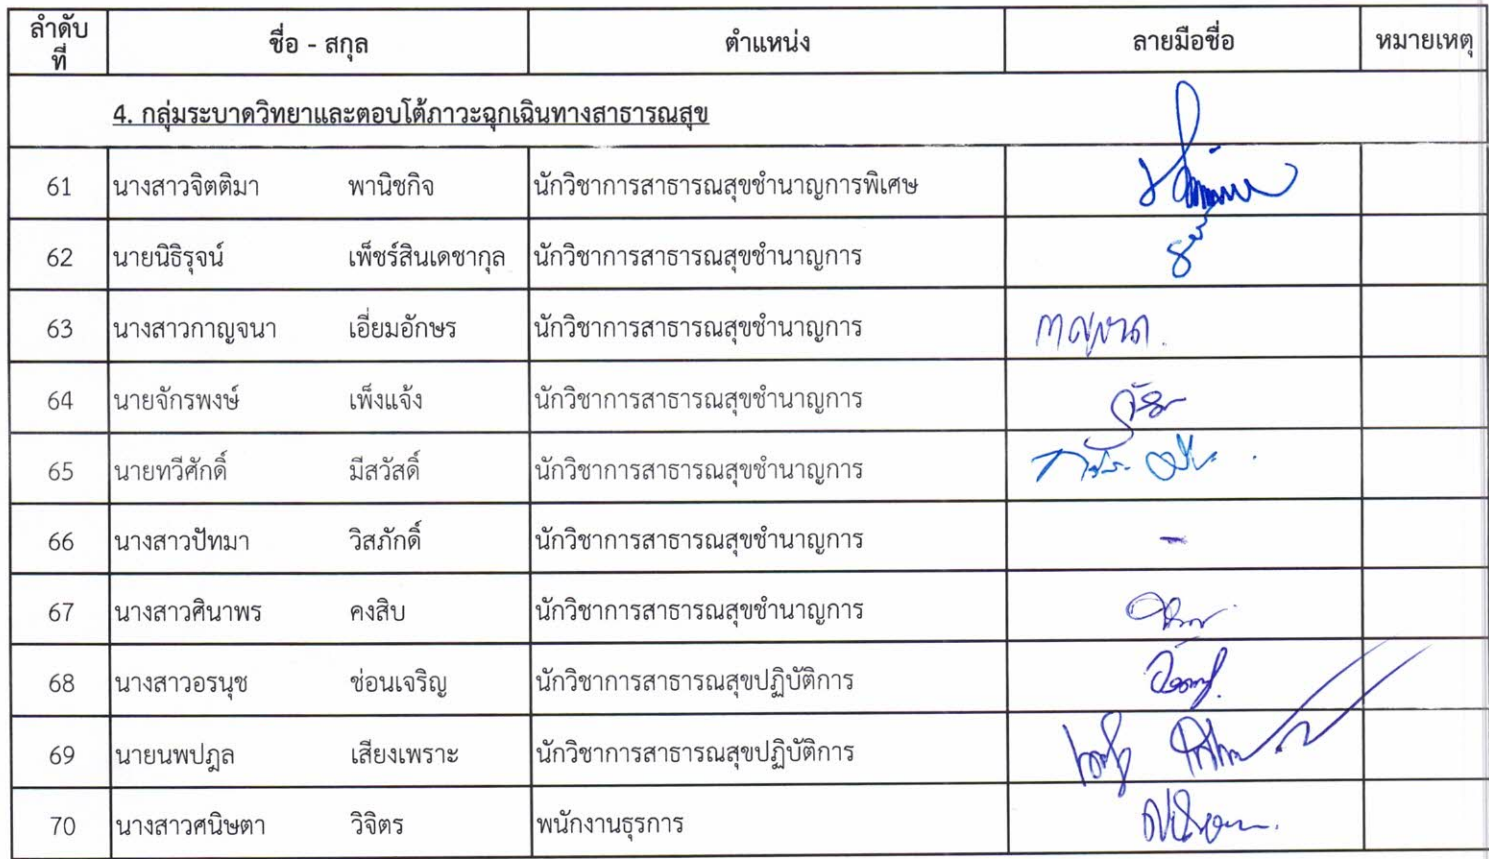 ลำดับที่ ชื่อ - สกุล ตำแหน่ง ลายมือชื่อ หมายเหตุ
4. กลุ่มระบาดวิทยาและตอบโต้ภาวะฉุกเฉินทางสาธารณสุข
61 นางสาวจิตติมา พานิชกิจ นักวิชาการสาธารณสุขชำนาญการพิเศษ
62 นายนิธิรุจน์ เพ็ชร์สินเดชากุล นักวิชาการสาธารณสุขชำนาญการ
63 นางสาวกาญจนา เอี่ยมอักษร นักวิชาการสาธารณสุขชำนาญการ กาญจนา.
64 นายจักรพงษ์ เพ็งแจ้ง นักวิชาการสาธารณสุขชำนาญการ
65 นายทวีศักดิ์ มีสวัสดิ์ นักวิชาการสาธารณสุขชำนาญการ
66 นางสาวปัทมา วิสภักดิ์ นักวิชาการสาธารณสุขชำนาญการ -
67 นางสาวศินาพร คงสิบ นักวิชาการสาธารณสุขชำนาญการ
68 นางสาวอรนุช ช่อนเจริญ นักวิชาการสาธารณสุขปฏิบัติการ
69 นายนพปฎล เสียงเพราะ นักวิชาการสาธารณสุขปฏิบัติการ
70 นางสาวศนิษตา วิจิตร พนักงานธุรการ